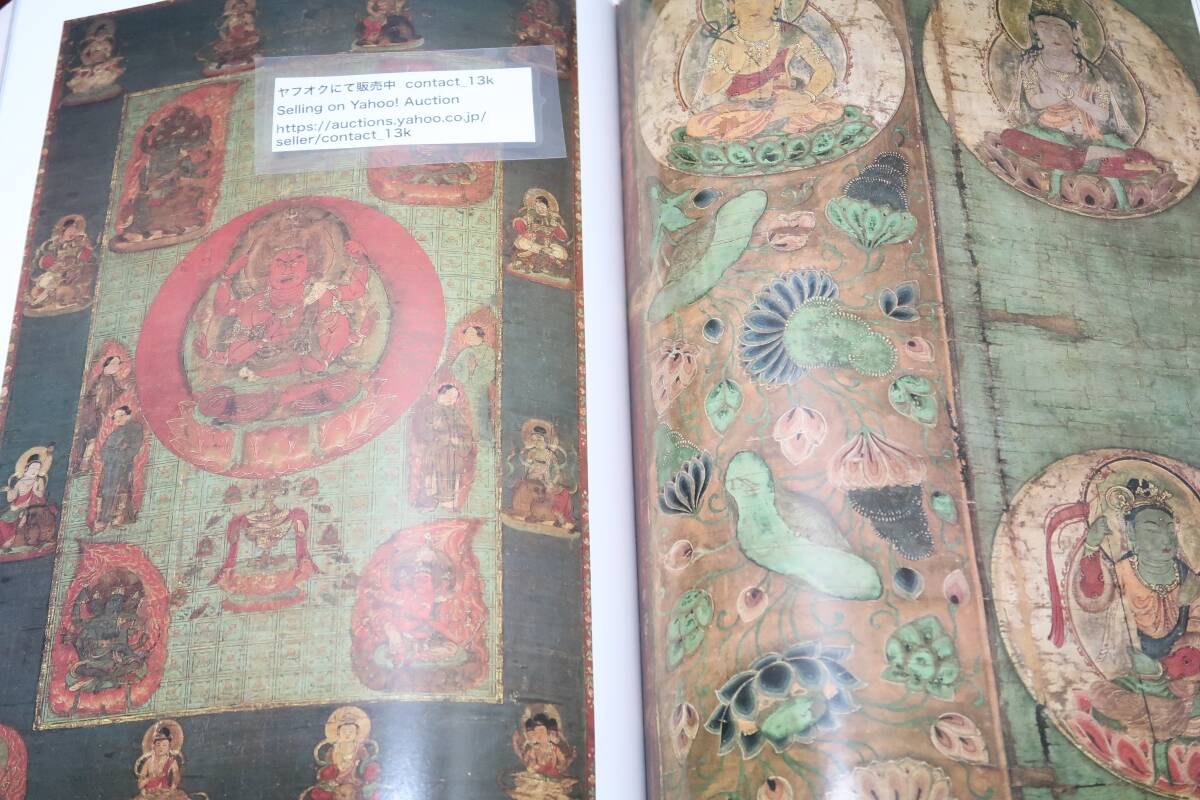 ヤフオクにて販売中 contact_13k
Selling on Yahoo! Auction
https://auctions.yahoo.co.jp/
seller/contact_13k